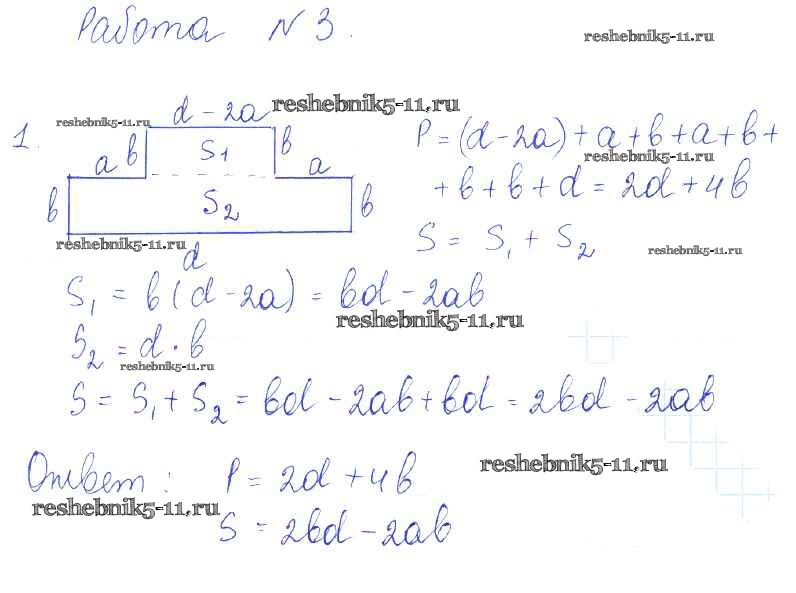 Работа N 3.
reshebnik5-11.ru
reshebnik5-11.ru
d - 2a
reshebnik5-11.ru
1.
b
S1
b
P = (d - 2a) + a + b + a + b +
a
a
reshebnik5-11.ru
b
S2
b
+ b + b + d = 2d + 4b
reshebnik5-11.ru
d
S = S1 + S2
reshebnik5-11.ru
S1 = b(d - 2a) = bd - 2ab
reshebnik5-11.ru
S2 = d · b
reshebnik5-11.ru
S = S1 + S2 = bd - 2ab + bd = 2bd - 2ab
Ответ: P = 2d + 4b
reshebnik5-11.ru
reshebnik5-11.ru
S = 2bd - 2ab